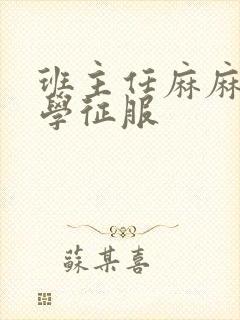 班主任麻麻
學征服
蘇某喜